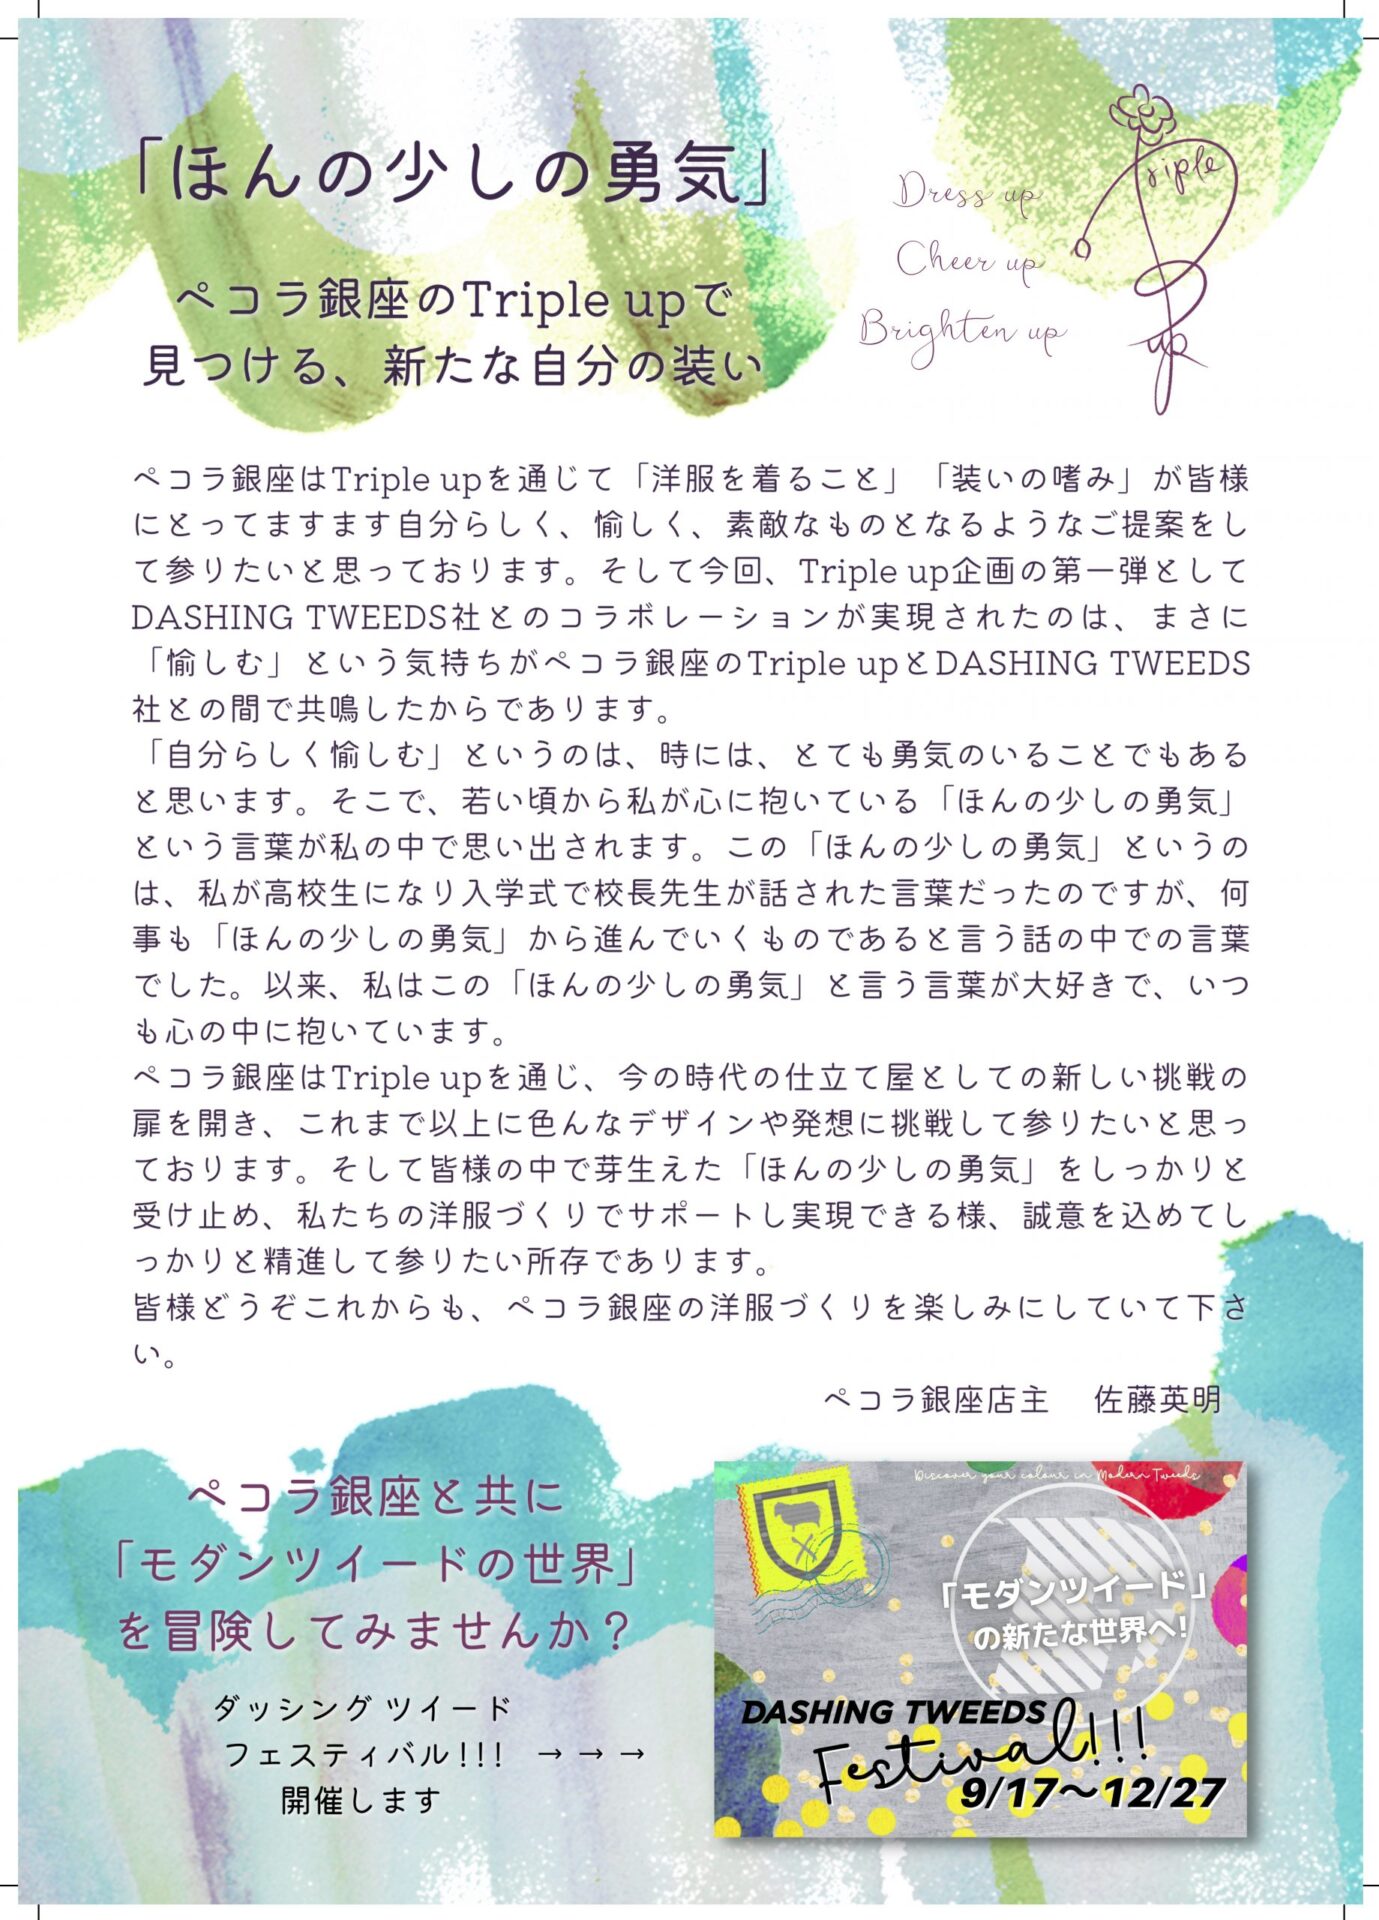 「ほんの少しの勇気」
ペコラ銀座のTriple upで
見つける、新たな自分の装い
Dress up
Cheer up
Brighten up
Triple
up
ペコラ銀座はTriple upを通じて「洋服を着ること」「装いの嗜み」が皆様
にとってますます自分らしく、愉しく、素敵なものとなるようなご提案をし
て参りたいと思っております。そして今回、Triple up企画の第一弾として
DASHING TWEEDS社とのコラボレーションが実現されたのは、まさに
「愉しむ」という気持ちがペコラ銀座のTriple upとDASHING TWEEDS
社との間で共鳴したからであります。
「自分らしく愉しむ」というのは、時には、とても勇気のいることでもある
と思います。そこで、若い頃から私が心に抱いている「ほんの少しの勇気」
という言葉が私の中で思い出されます。この「ほんの少しの勇気」というの
は、私が高校生になり入学式で校長先生が話された言葉だったのですが、何
事も「ほんの少しの勇気」から進んでいくものであると言う話の中での言葉
でした。以来、私はこの「ほんの少しの勇気」と言う言葉が大好きで、いつ
も心の中に抱いています。
ペコラ銀座はTriple upを通じ、今の時代の仕立て屋としての新しい挑戦の
扉を開き、これまで以上に色んなデザインや発想に挑戦して参りたいと思っ
ております。そして皆様の中で芽生えた「ほんの少しの勇気」をしっかりと
受け止め、私たちの洋服づくりでサポートし実現できる様、誠意を込めてし
っかりと精進して参りたい所存であります。
皆様どうぞこれからも、ペコラ銀座の洋服づくりを楽しみにしていて下さ
い。
ペコラ銀座店主 佐藤英明
ペコラ銀座と共に
「モダンツイードの世界」
を冒険してみませんか？
ダッシング ツイード
フェスティバル!!! →→→
開催します
Discover your colour in Modern Tweeds
「モダンツイード」
の新たな世界へ!
DASHING TWEEDS
Festival!!!
9/17〜12/27